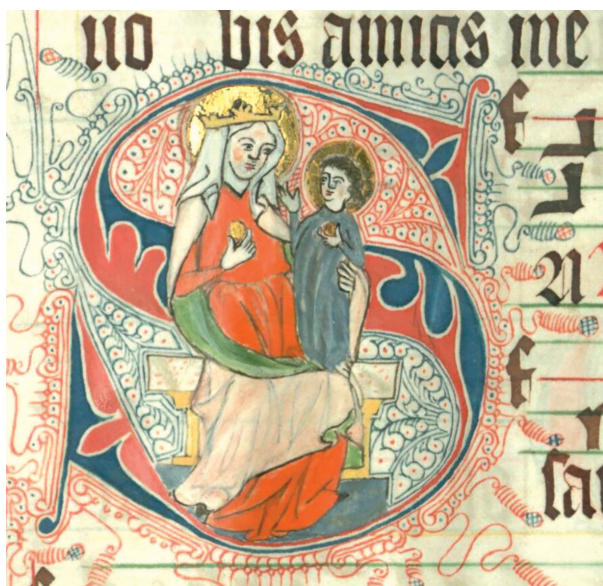 uo bis amicis me
S
f
A
f
sa